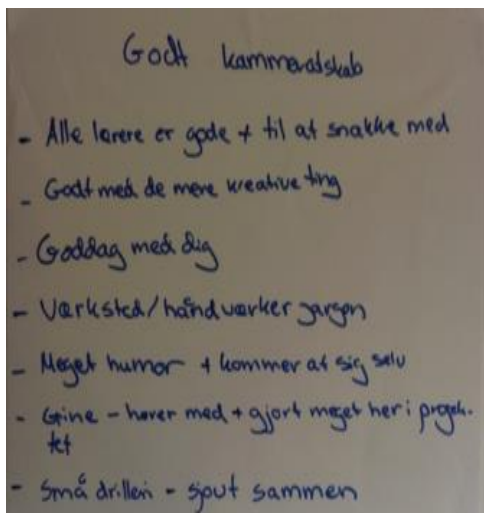 Godt kammeratskab
- Alle lærere er gode + til at snakke med
- Godt med de mere kreative ting
- Goddag med dig
- Værksted/håndværker jargon
- Meget humor + kommer af sig selv
- Grine - hører med + gjort meget her i projek-
tet
- Små drilleri - sjovt sammen